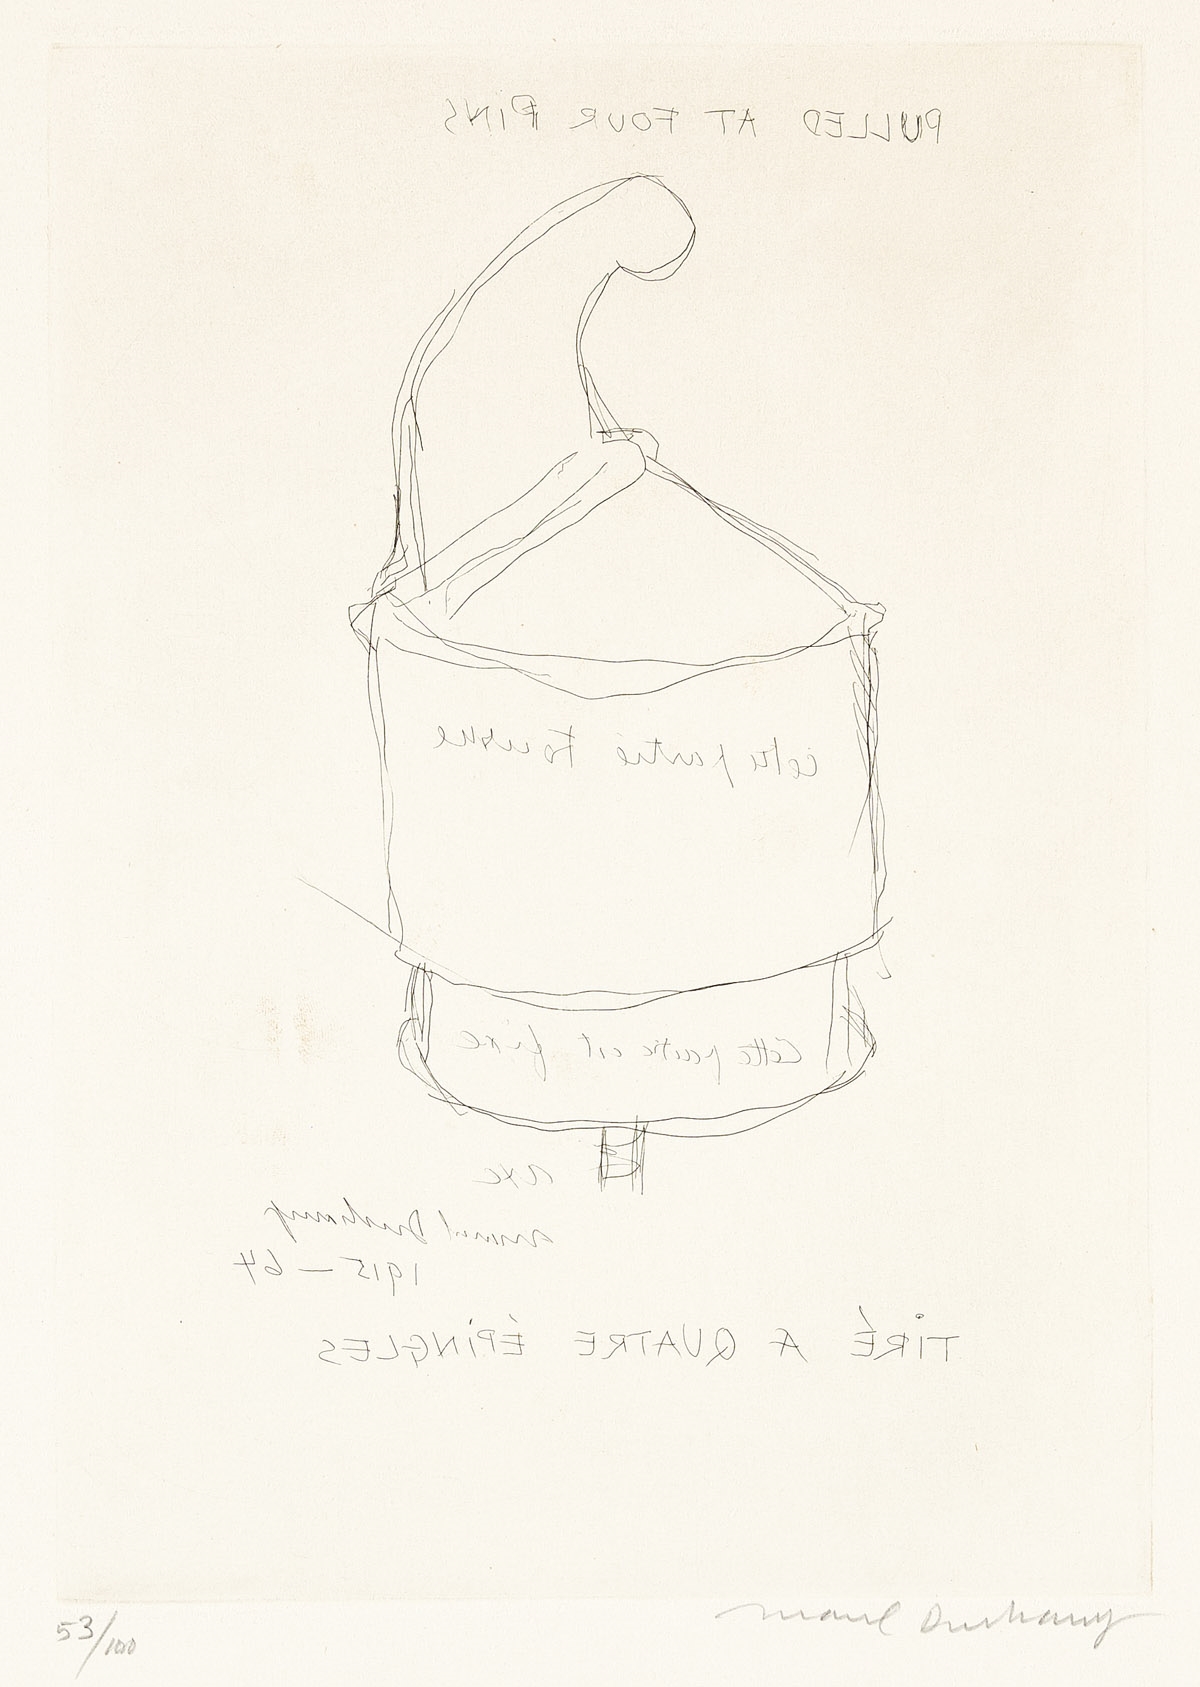 PULLED AT FOUR PINS
cette partie tourne
Cette partie est fixe
axe
marcel Duchamp
1915 — 64
TIRÉ A QUATRE ÉPINGLES
53/100
Marcel Duchamp